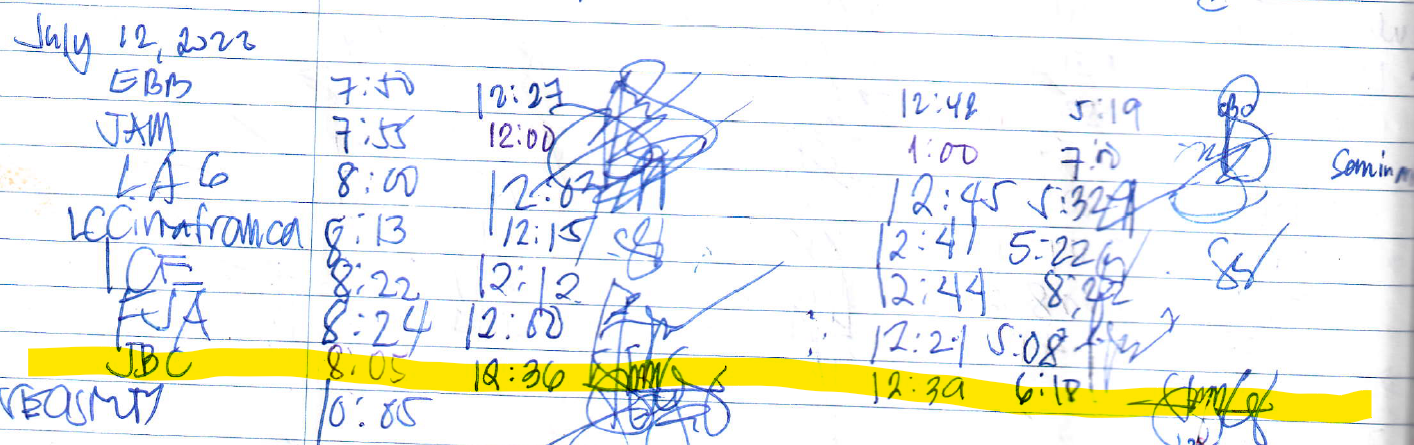 July 12, 2022
EBB 7:50 12:27 12:42 5:19
JAM 7:55 12:00 1:00 7:00 Semin
LAG 8:00 12:02 12:45 5:32
LCCinafranca 8:13 12:15 12:41 5:22
LCE 8:22 12:12 12:44 8:22
FJA 8:24 12:00 12:21 5:08
JBC 8:05 12:36 12:39 6:18
10:05